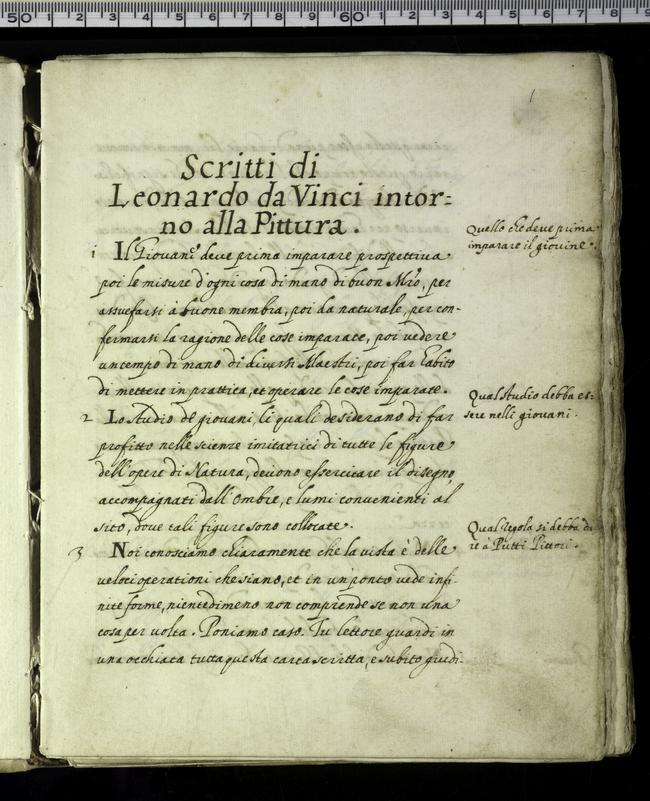 1
Scritti di
Leonardo da Vinci intor=
no alla Pittura.
Quello che deve prima
imparare il giovine.
1 Il Giovane deve prima imparare prospettiva
poi le misure d'ogni cosa di mano di buon Mro, per
assuefarsi à buone membra, poi da naturale, per con-
fermarsi la ragione delle cose imparate, poi vedere
un tempo di mano di diversi Maestri, poi far habito
di mettere in prattica, et operare le cose imparate.
Qual studio debba es-
sere nelli giovani.
2 Lo studio de giovani, li quali desiderano di far
profitto nelle scienze imitatrici di tutte le figure
dell'opere di Natura, devono essercitare il disegno
accompagnati dall'ombre, e lumi convenienti al
sito, dove tali figure sono collocate.
Qual regola si debba da
re à Putti Pittori.
3 Noi conosciamo chiaramente che la vista è delle
veloci operationi che siano, et in un'ponto vede infi-
nite forme, nientedimeno non comprende se non una
cosa per volta. Poniamo caso. Tu lettore guardi in
una occhiata tutta questa carta scritta, e subito giudi-